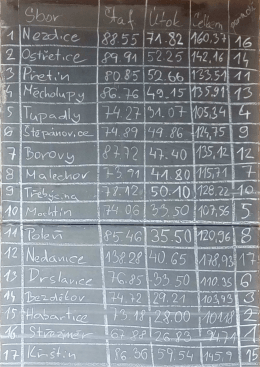 Sbor Štaf. Útok Celkem pořadí
1 Nezdice 88.55 71.82 160.37 16
2 Ostřetice 89.91 52.25 142,16 14
3 Přetín 80.85 52.66 133.51 11
4 Měcholupy 86.76 49.15 135,91 13
5 Tupadly 74.27 31.07 105,34 4
6 Štěpánovice 74.89 49.86 124,75 9
7 Borovy 87.72 47.40 135,12 12
8 Malechov 73.91 41.80 115,71 7
9 78.12 50.10 128.22 10
10 Mochtín 74.06 33.50 107,56 5
11 Poleň 85.46 35.50 120,96 8
12 Nedanice 138.28 40.65 178,93 17
13 Drslavice 76.85 33.50 110.35 6
14 Bezděkov 74.72 29.21 103,93 3
15 Habartice 73.18 28.00 101.18 2
16 67.88 26.83 94.71 1
17 86.36 59.54 145.9 15